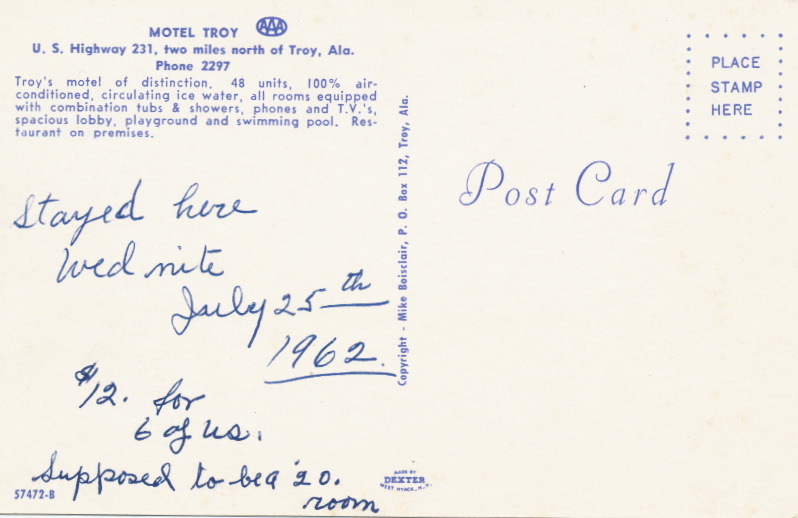 MOTEL TROY AAA
U. S. Highway 231, two miles north of Troy, Ala.
Phone 2297
Troy's motel of distinction, 48 units, 100% air-
conditioned, circulating ice water, all rooms equipped
with combination tubs & showers, phones and T.V.'s,
spacious lobby, playground and swimming pool. Res-
taurant on premises.
Stayed here
Wed nite
July 25th
1962.
$12. for
6 of us.
Supposed to be a $20.
room
57472-B
Copyright - Mike Boisclair, P. O. Box 112, Troy, Ala.
MADE BY
DEXTER
WEST NYACK, N.Y.
PLACE
STAMP
HERE
Post Card